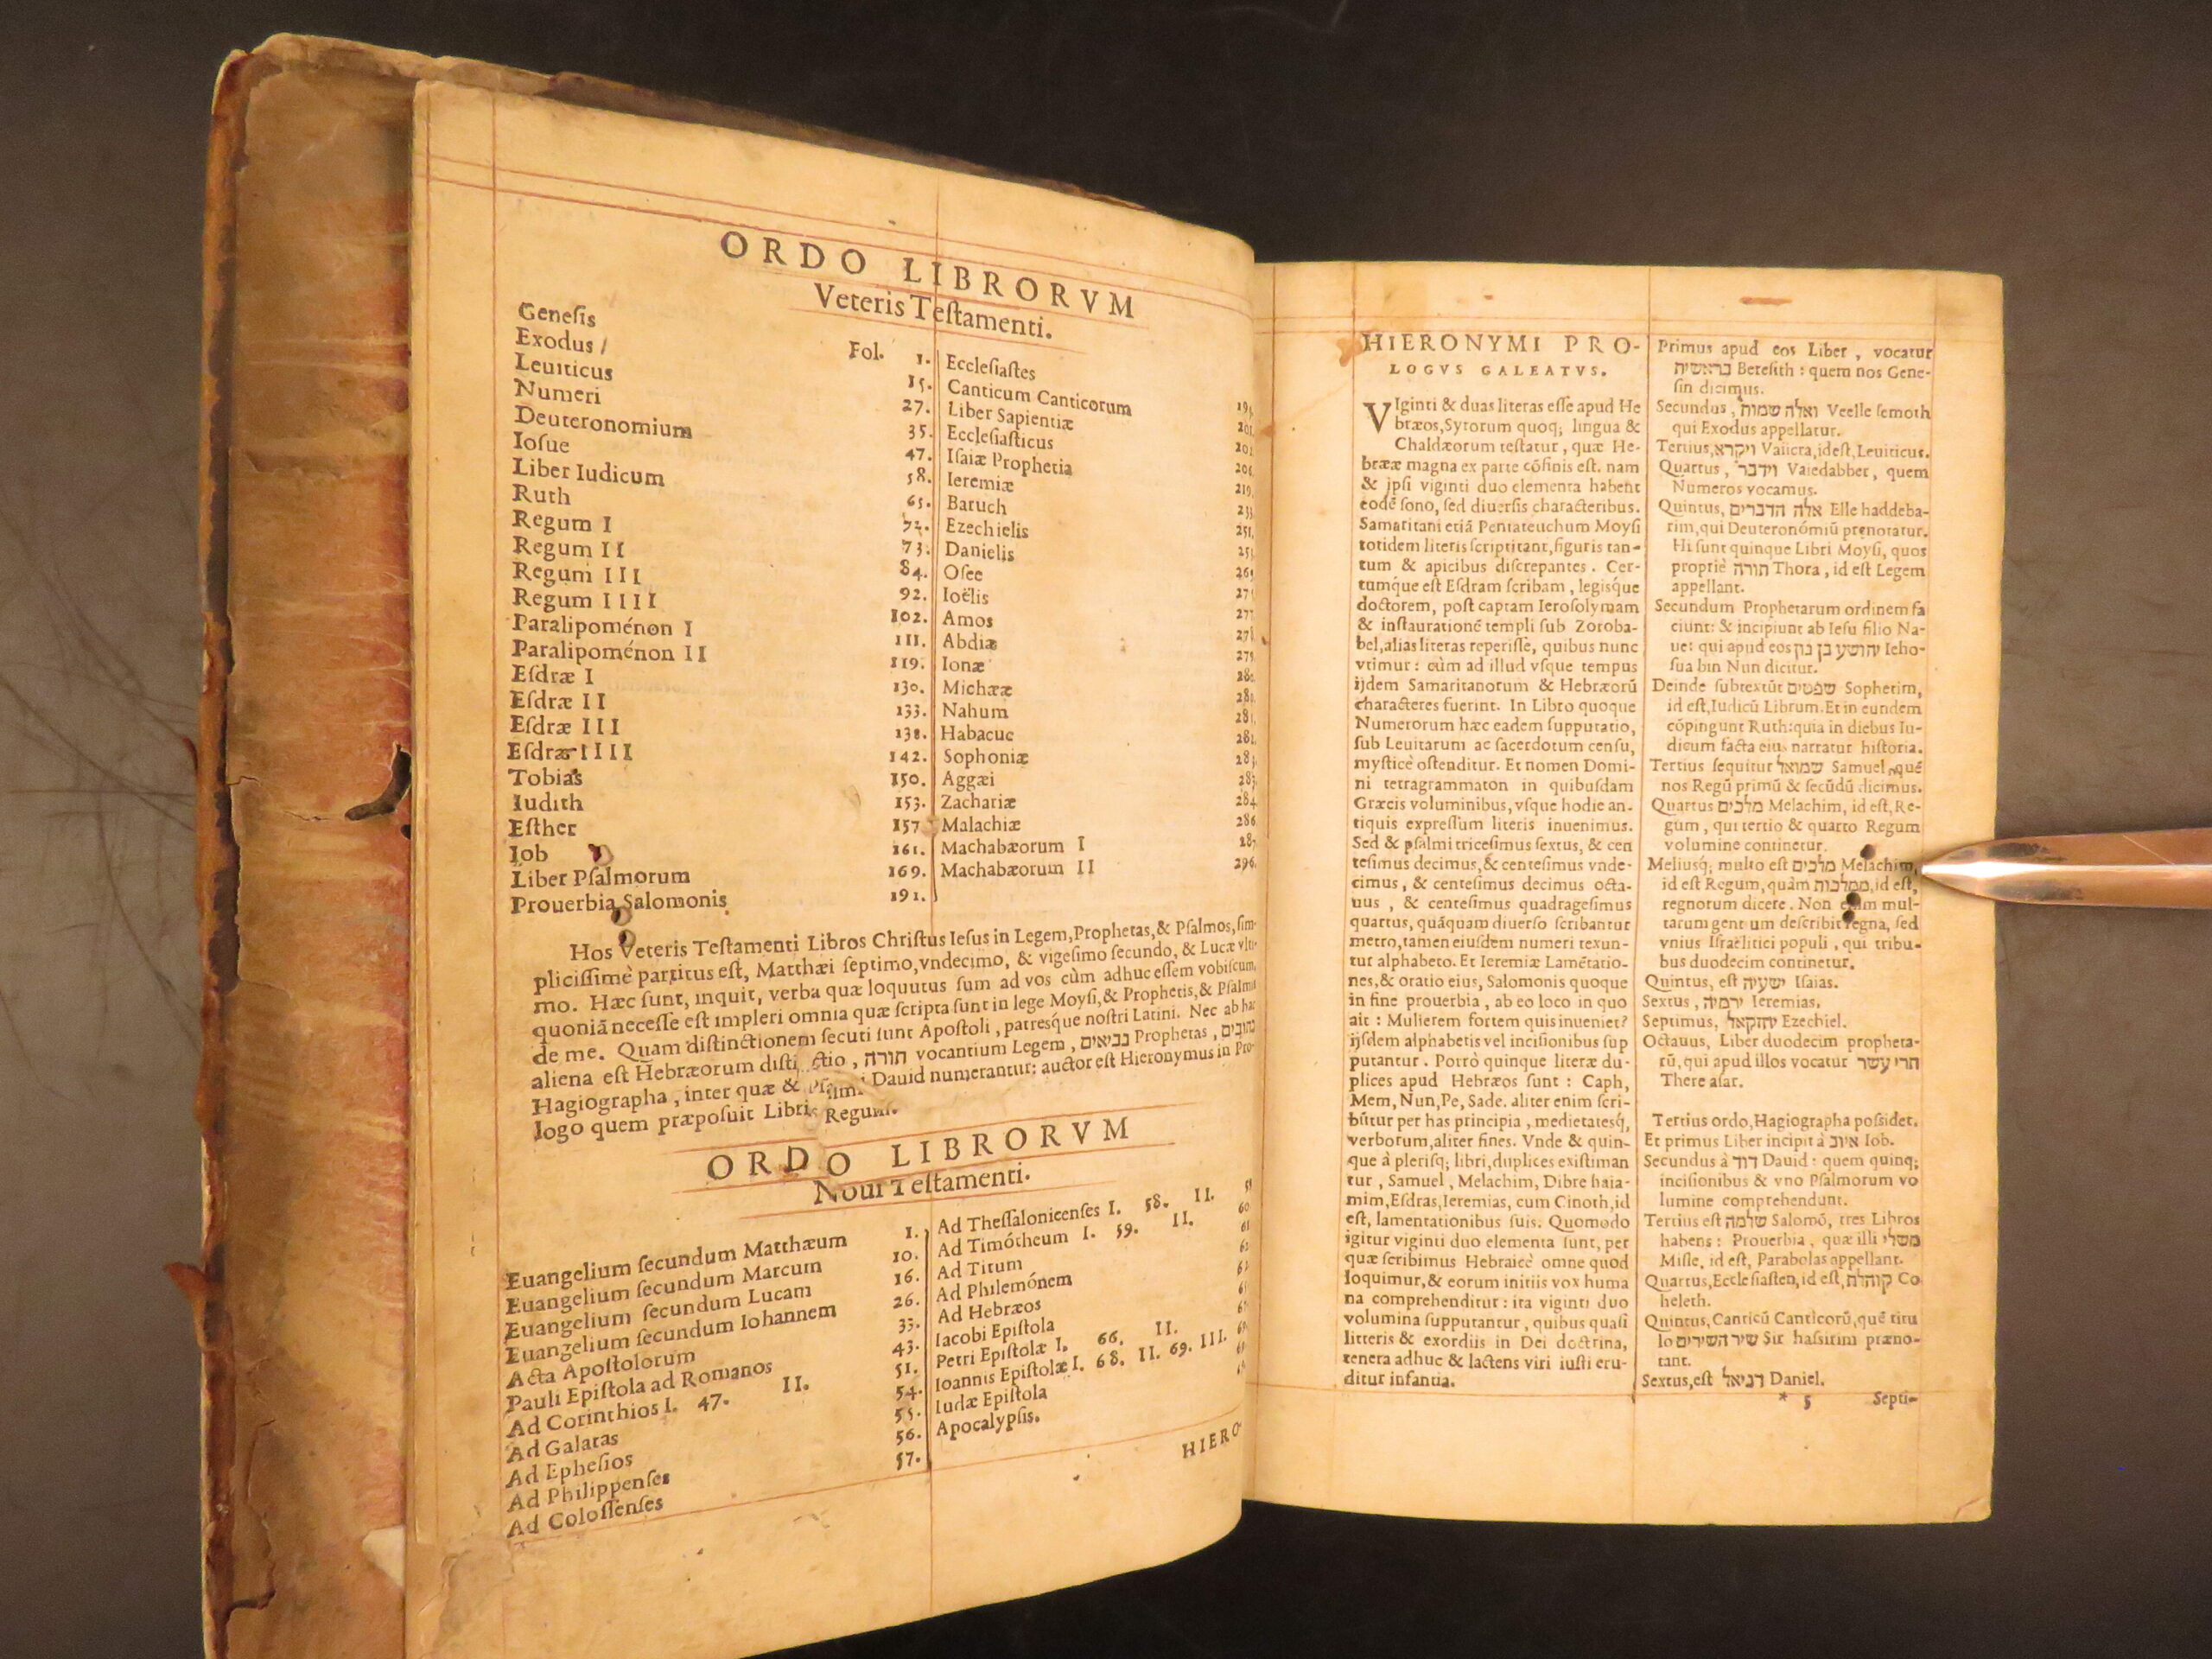 ORDO LIBRORVM
Veteris Teſtamenti.
Geneſis Fol. 1.
Exodus 15.
Leuiticus 27.
Numeri 35.
Deuteronomium 47.
Ioſue 58.
Liber Iudicum 65.
Ruth 72.
Regum I 73.
Regum II 84.
Regum III 92.
Regum IIII 102.
Paralipoménon I 111.
Paralipoménon II 119.
Eſdræ I 130.
Eſdræ II 133.
Eſdræ III 138.
Eſdræ IIII 142.
Tobias 150.
Iudith 153.
Eſther 157
Iob 161.
Liber Pſalmorum 169.
Prouerbia Salomonis 191.
Eccleſiaſtes
Canticum Canticorum
Liber Sapientiæ
Eccleſiaſticus
Iſaiæ Prophetia
Ieremiæ
Baruch
Ezechielis
Danielis
Oſee
Ioëlis
Amos
Abdiæ
Ionæ
Michææ
Nahum
Habacuc
Sophoniæ
Aggæi
Zachariæ 284
Malachiæ 286
Machabæorum I 287
Machabæorum II 296.
Hos Veteris Teſtamenti Libros Chriſtus Ieſus in Legem, Prophetas, & Pſalmos, ſim-
pliciſſimè partitus eſt, Matthæi ſeptimo, vndecimo, & vigeſimo ſecundo, & Lucæ vlti-
mo. Hæc ſunt, inquit, verba quæ loquutus ſum ad vos cùm adhuc eſſem vobiſcum,
quoniā neceſſe eſt impleri omnia quæ ſcripta ſunt in lege Moyſi, & Prophetis, & Pſalmis
de me. Quam diſtinctionem ſecuti ſunt Apoſtoli, patreſque noſtri Latini. Nec ab hac
aliena eſt Hebræorum diſti ctio, תורה vocantium Legem, נביאים Prophetas, כתובים
Hagiographa, inter quæ & Pſalmi Dauid numerantur: auctor eſt Hieronymus in Pro-
logo quem præpoſuit Libris Regum.
ORDO LIBRORVM
Noui Teſtamenti.
Euangelium ſecundum Matthæum 1.
Euangelium ſecundum Marcum 10.
Euangelium ſecundum Lucam 16.
Euangelium ſecundum Iohannem 26.
Acta Apoſtolorum 33.
Pauli Epiſtola ad Romanos 43.
Ad Corinthios I. 47. II. 51.
Ad Galatas 54.
Ad Epheſios 55.
Ad Philippenſes 56.
Ad Coloſſenſes 57.
Ad Theſſalonicenſes I. 58. II.
Ad Timótheum I. 59. II.
Ad Titum
Ad Philemónem
Ad Hebræos
Iacobi Epiſtola
Petri Epiſtolæ I. 66. II.
Ioannis Epiſtolæ I. 68. II. 69. III.
Iudæ Epiſtola
Apocalypſis.
HIERO-
HIERONYMI PRO-
LOGVS GALEATVS.
VIginti & duas literas eſſe apud He
bræos, Syrorum quoq; lingua &
Chaldæorum teſtatur, quæ He-
brææ magna ex parte cōfinis eſt. nam
& ipſi viginti duo elementa habent
eodē ſono, ſed diuerſis characteribus.
Samaritani etiā Pentateuchum Moyſi
totidem literis ſcriptitant, figuris tan-
tum & apicibus diſcrepantes. Cer-
tumq́ue eſt Eſdram ſcribam, legiſq́ue
doctorem, poſt captam Ieroſolymam
& inſtaurationē templi ſub Zoroba-
bel, alias literas reperiſſe, quibus nunc
vtimur: cùm ad illud vſque tempus
ijdem Samaritanorum & Hebræorū
characteres fuerint. In Libro quoque
Numerorum hæc eadem ſupputatio,
ſub Leuitarum ac ſacerdotum cenſu,
myſticè oſtenditur. Et nomen Domi-
ni tetragrammaton in quibuſdam
Græcis voluminibus, vſque hodie an-
tiquis expreſſum literis inuenimus.
Sed & pſalmi triceſimus ſextus, & cen
teſimus decimus, & centeſimus vnde-
cimus, & centeſimus decimus octa-
uus, & centeſimus quadrageſimus
quartus, quāquam diuerſo ſcribantur
metro, tamen eiuſdem numeri texun-
tur alphabeto. Et Ieremiæ Lamētatio-
nes, & oratio eius, Salomonis quoque
in fine prouerbia, ab eo loco in quo
ait: Mulierem fortem quis inueniet?
ijſdem alphabetis vel inciſionibus ſup
putantur. Porrò quinque literæ du-
plices apud Hebræos ſunt: Caph,
Mem, Nun, Pe, Sade. aliter enim ſcri-
būtur per has principia, medietateſq́,
verborum, aliter fines. Vnde & quin-
que à pleriſq; libri, duplices exiſtiman
tur, Samuel, Melachim, Dibre haia-
mim, Eſdras, Ieremias, cum Cinoth, id
eſt, lamentationibus ſuis. Quomodo
igitur viginti duo elementa ſunt, per
quæ ſcribimus Hebraicè omne quod
loquimur, & eorum initiis vox huma
na comprehenditur: ita viginti duo
volumina ſupputantur, quibus quaſi
litteris & exordiis in Dei doctrina,
tenera adhuc & lactens viri iuſti eru-
ditur infantia.
Primus apud eos Liber, vocatur
בראשית Bereſith: quem nos Gene-
ſin dicimus.
Secundus, ואלה שמות Veelle ſemoth
qui Exodus appellatur.
Tertius, ויקרא Vaiicra, ideſt, Leuiticus.
Quartus, וידבר Vaiedabber, quem
Numeros vocamus.
Quintus, אלה הדברים Elle haddeba-
rim, qui Deuteronómiū prenotatur.
Hi ſunt quinque Libri Moyſi, quos
propriè תורה Thora, id eſt Legem
appellant.
Secundum Prophetarum ordinem fa
ciunt: & incipiunt ab Ieſu filio Na-
ue: qui apud eos יהושע בן נון Ieho-
ſua bin Nun dicitur.
Deinde ſubtextūt שפטים Sophetim,
id eſt, Iudicū Librum. Et in eundem
cōpingunt Ruth: quia in diebus Iu-
dicum facta eius narratur hiſtoria.
Tertius ſequitur שמואל Samuel, quē
nos Regū primū & ſecūdū dicimus.
Quartus מלכים Melachim, id eſt, Re-
gum, qui tertio & quarto Regum
volumine continetur.
Meliuſq; multo eſt מלכים Melachim,
id eſt Regum, quàm ממלכות, id eſt,
regnorum dicere. Non enim mul-
tarum gentium deſcribit regna, ſed
vnius Iſraëlitici populi, qui tribu-
bus duodecim continetur.
Quintus, eſt ישעיה Iſaias.
Sextus, ירמיה Ieremias.
Septimus, יחזקאל Ezechiel.
Octauus, Liber duodecim propheta-
rū, qui apud illos vocatur תרי עשר
There aſar.
Tertius ordo, Hagiographa poſſidet.
Et primus Liber incipit à איוב Iob.
Secundus à דוד Dauid: quem quinq;
inciſionibus & vno Pſalmorum vo
lumine comprehendunt.
Tertius eſt שלמה Salomō, tres Libros
habens: Prouerbia, quæ illi משלי
Miſle, id eſt, Parabolas appellant.
Quartus, Eccleſiaſten, id eſt, קוהלת Co
heleth.
Quintus, Canticū Canticorū, quē titu
lo שיר השירים Sir haſſirim præno-
tant.
Sextus, eſt דניאל Daniel.
* 5 Septi-